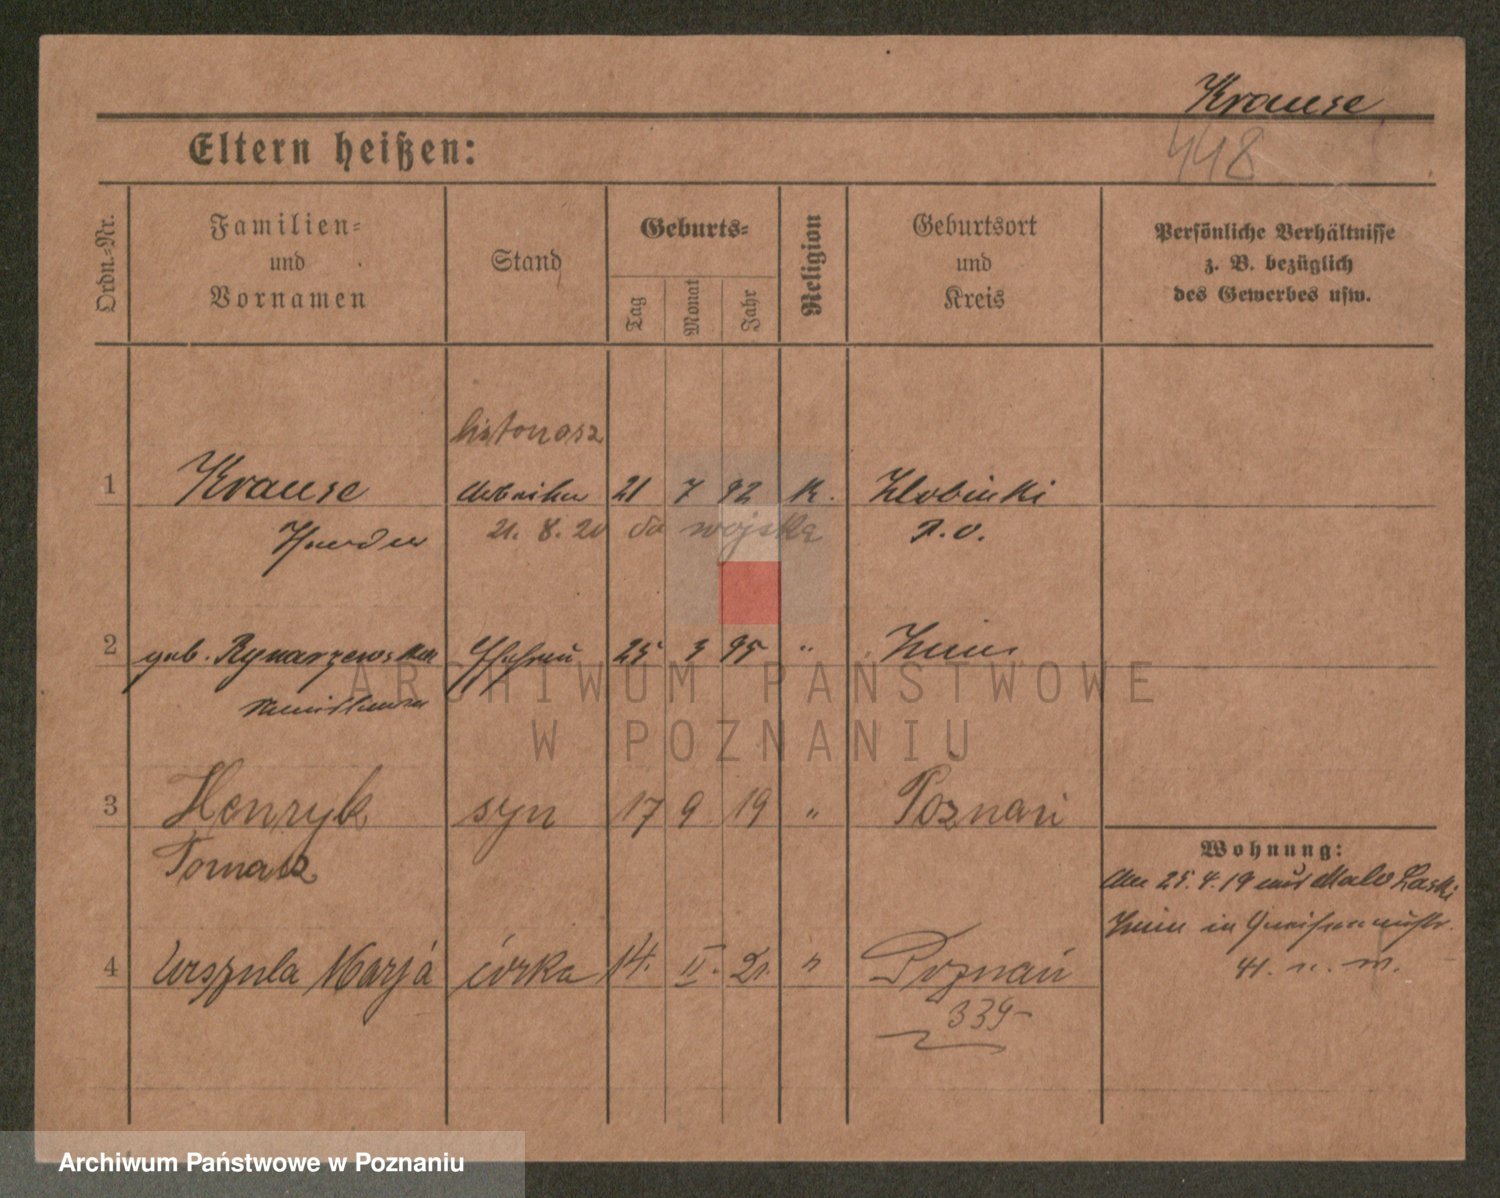 Krause
448
Eltern heißen:
Ordn.-Nr.
Familien-
und
Vornamen
Stand
Geburts-
Tag
Monat
Jahr
Religion
Geburtsort
und
Kreis
Persönliche Verhältnisse
z. B. bezüglich
des Gewerbes usw.
1
Krause
Arbeiter
21 7 92 K.
21. 8. 20 do wojska
2
geb. Rynarzewska
Ehefrau
25 3 95 "
Znin
3
Henryk
syn
17 9 19 "
Poznań
Tomasz
Wohnung:
25.4.19 aus
Znin in Gneisenaustr.
41.
4
Urszula Marja
córka
14. II. 21. "
Poznań
339-
ARCHIWUM PAŃSTWOWE
W POZNANIU
Archiwum Państwowe w Poznaniu